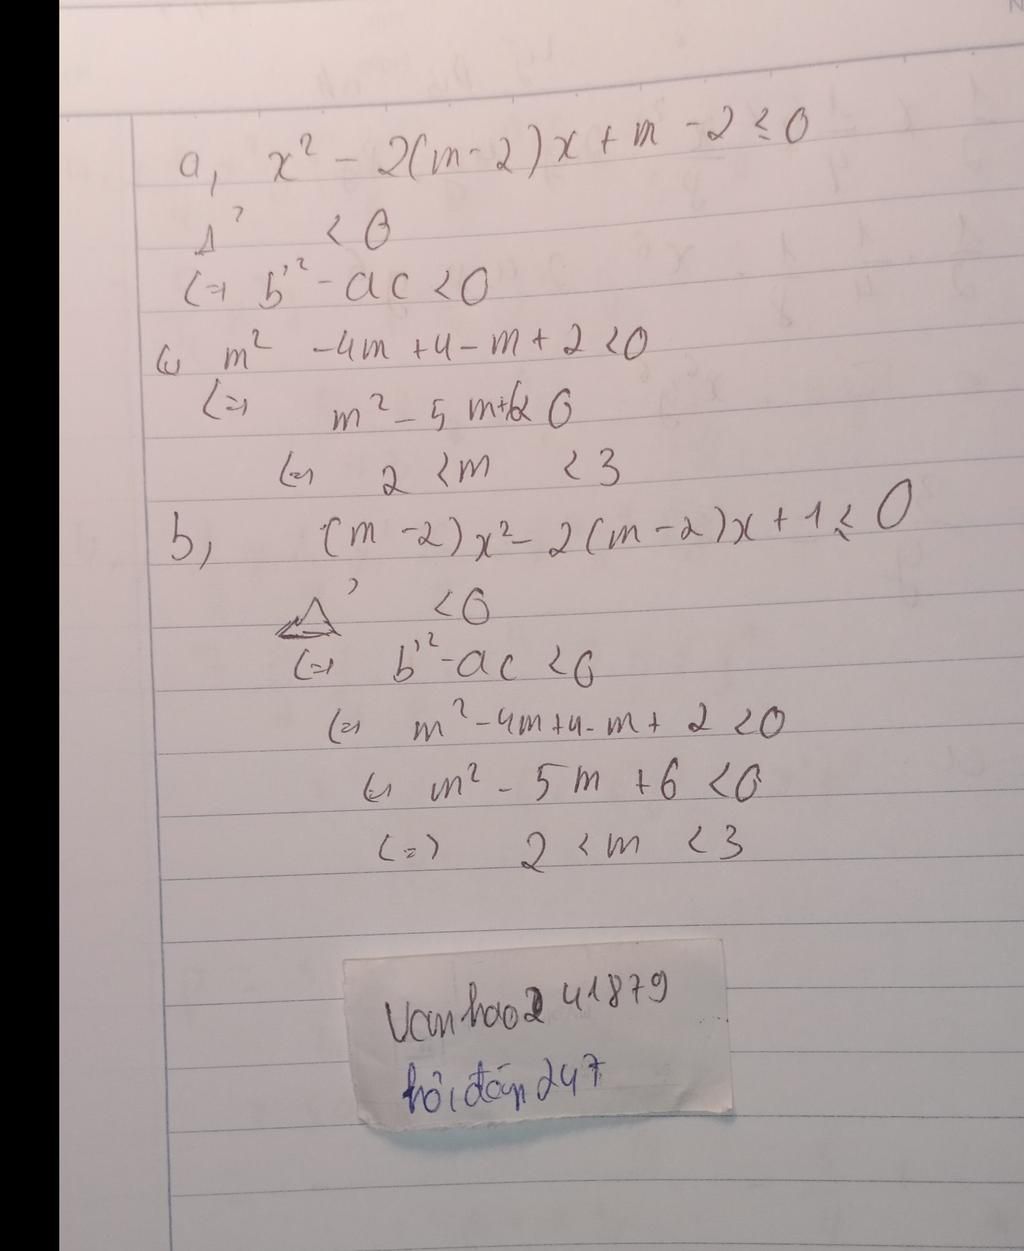 a, x² - 2(m-2)x + m - 2 ≤ 0
Δ' < 0
(=) b'² - ac < 0
(=) m² - 4m + 4 - m + 2 < 0
(=) m² - 5m + 6 < 0
(=) 2 < m < 3
b, (m-2)x² - 2(m-2)x + 1 ≤ 0
Δ' < 0
(=) b'² - ac < 0
(=) m² - 4m + 4 - m + 2 < 0
(=) m² - 5m + 6 < 0
(=) 2 < m < 3
Vanhao241879
hỏiđáp247